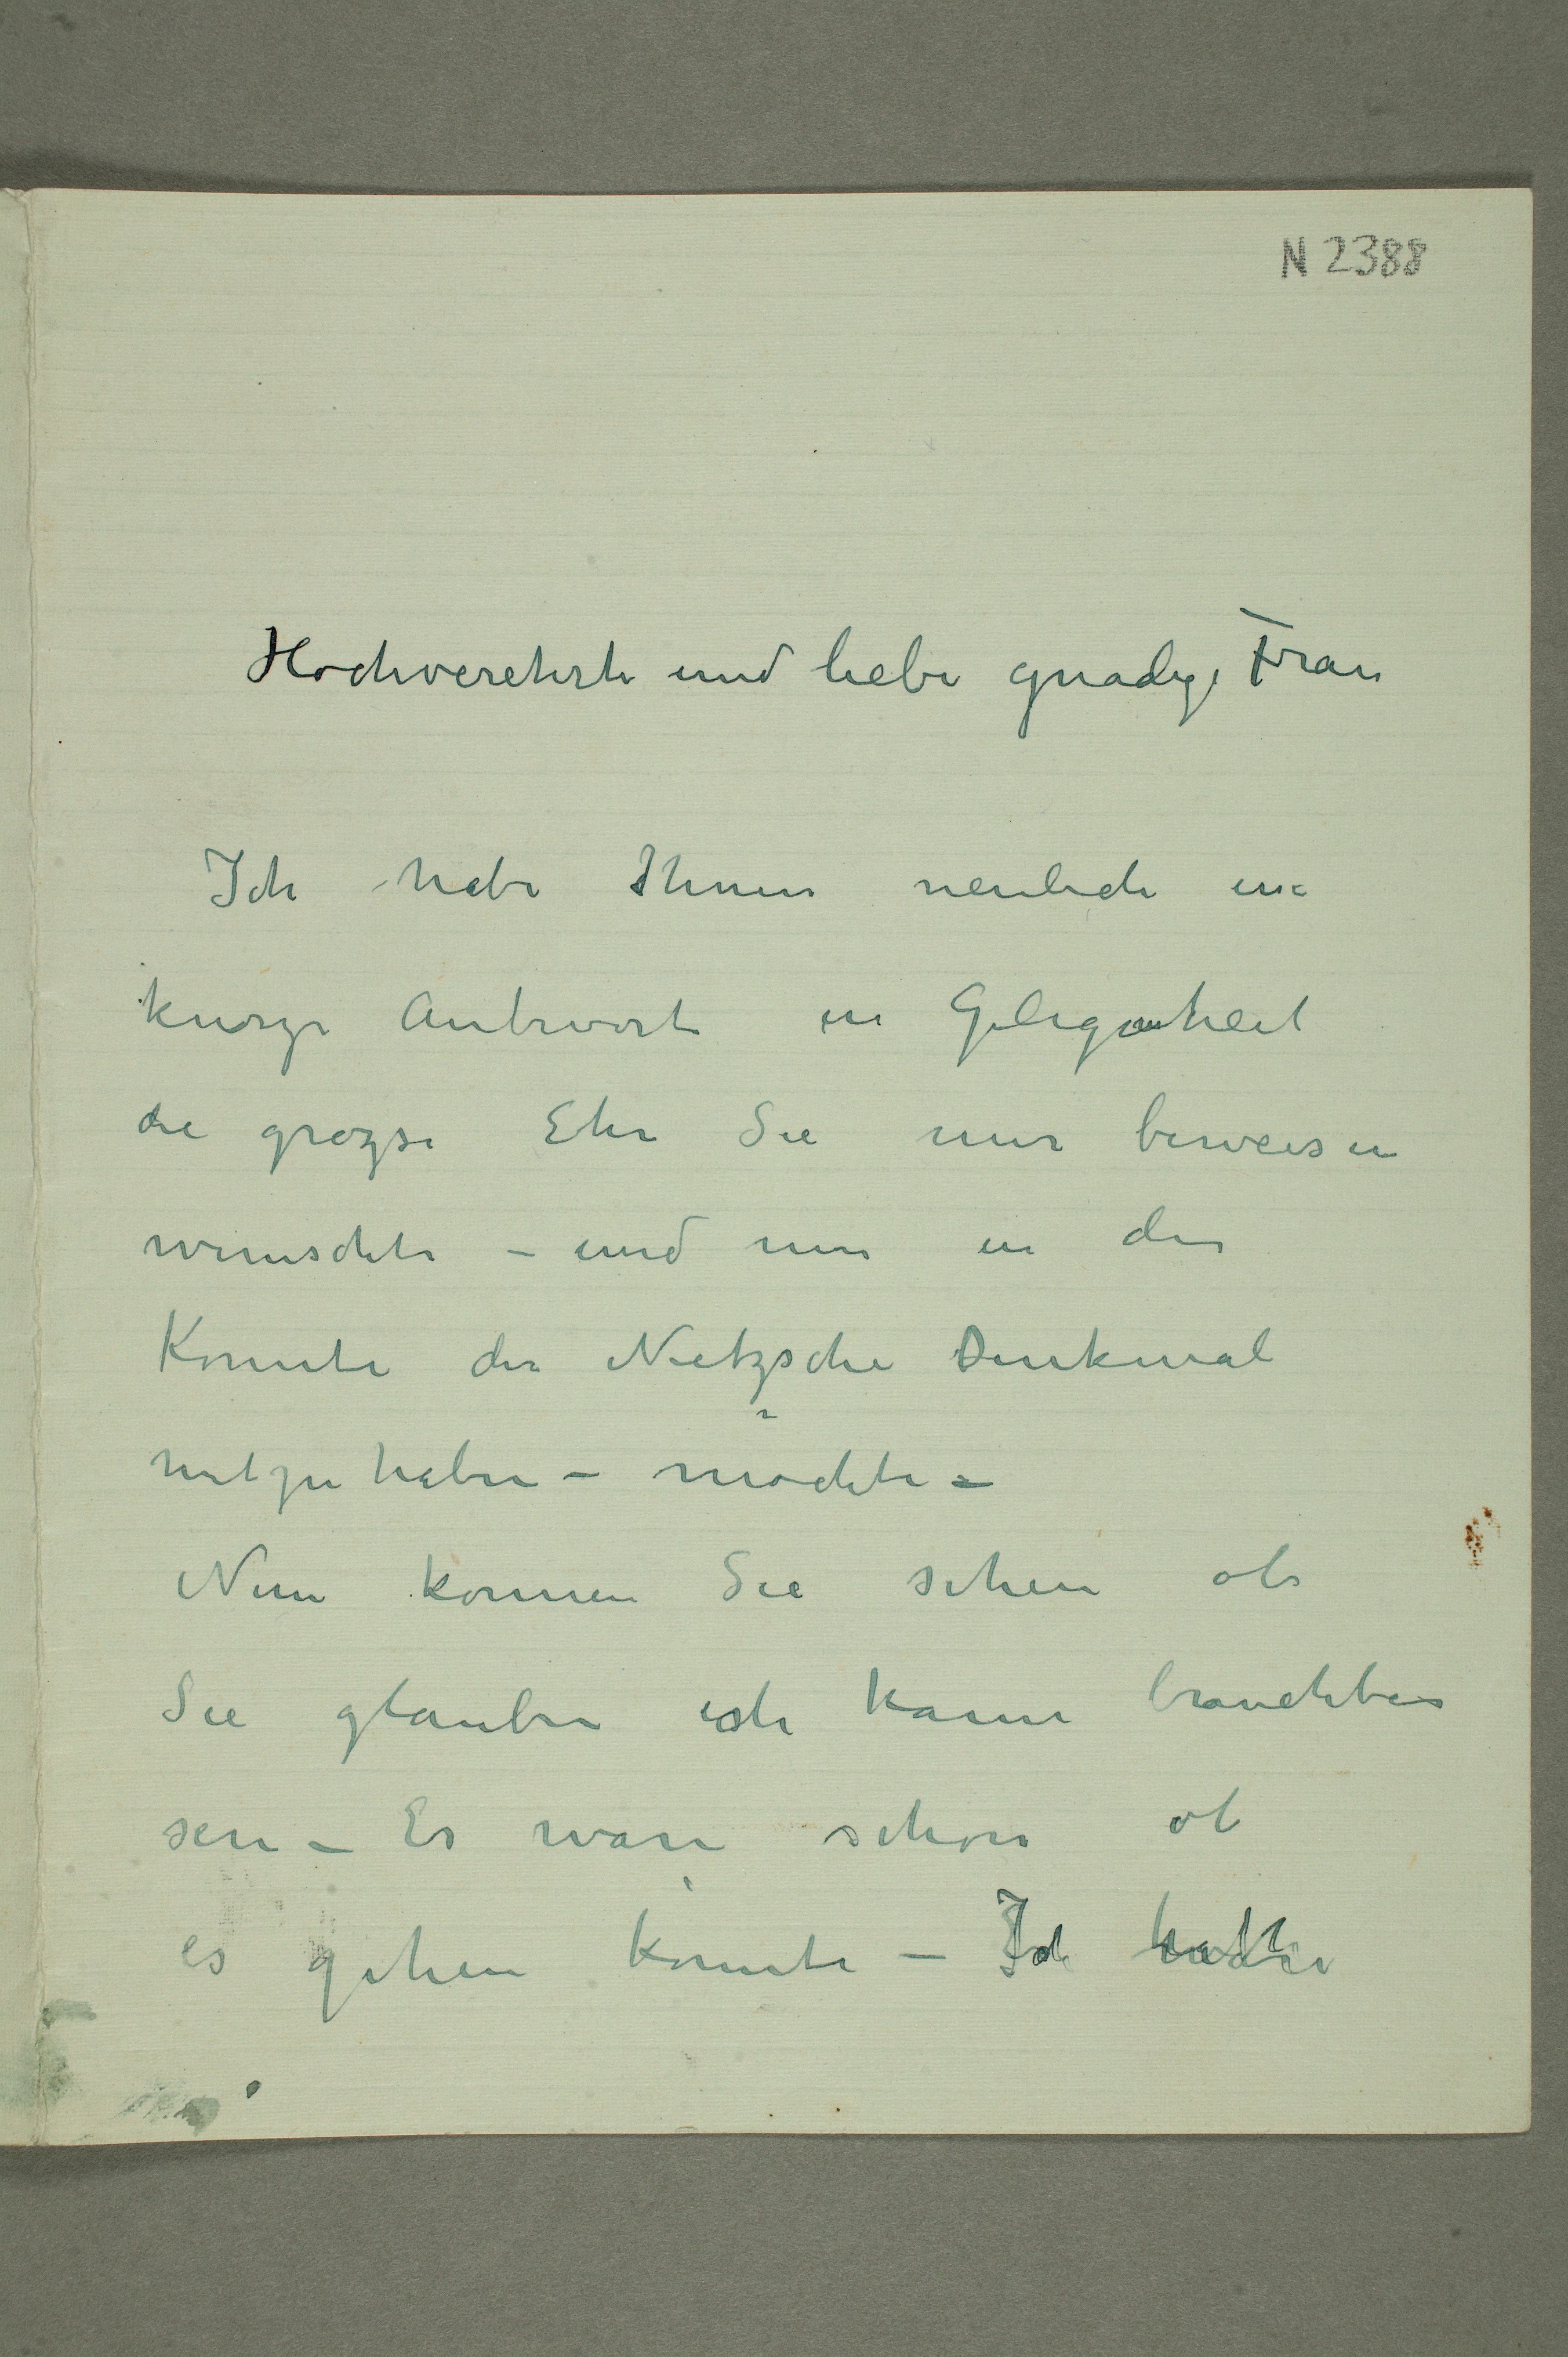 N 2388
Hochverehrte und liebe gnadige Frau
Ich habe Ihnen neulich eine
kurze Antwort in Gelegenheit
die grozse Ehre Sie mir beweisen
wunschte – und mir in der
Komite der Nietzsche Denkmal
mitzuhaben – möchte –
Nun konnen Sie sehen ob
Sie glauben ich kann brauchbar
sein – Es ware schon ob
es gehen konnte – Ich hatte